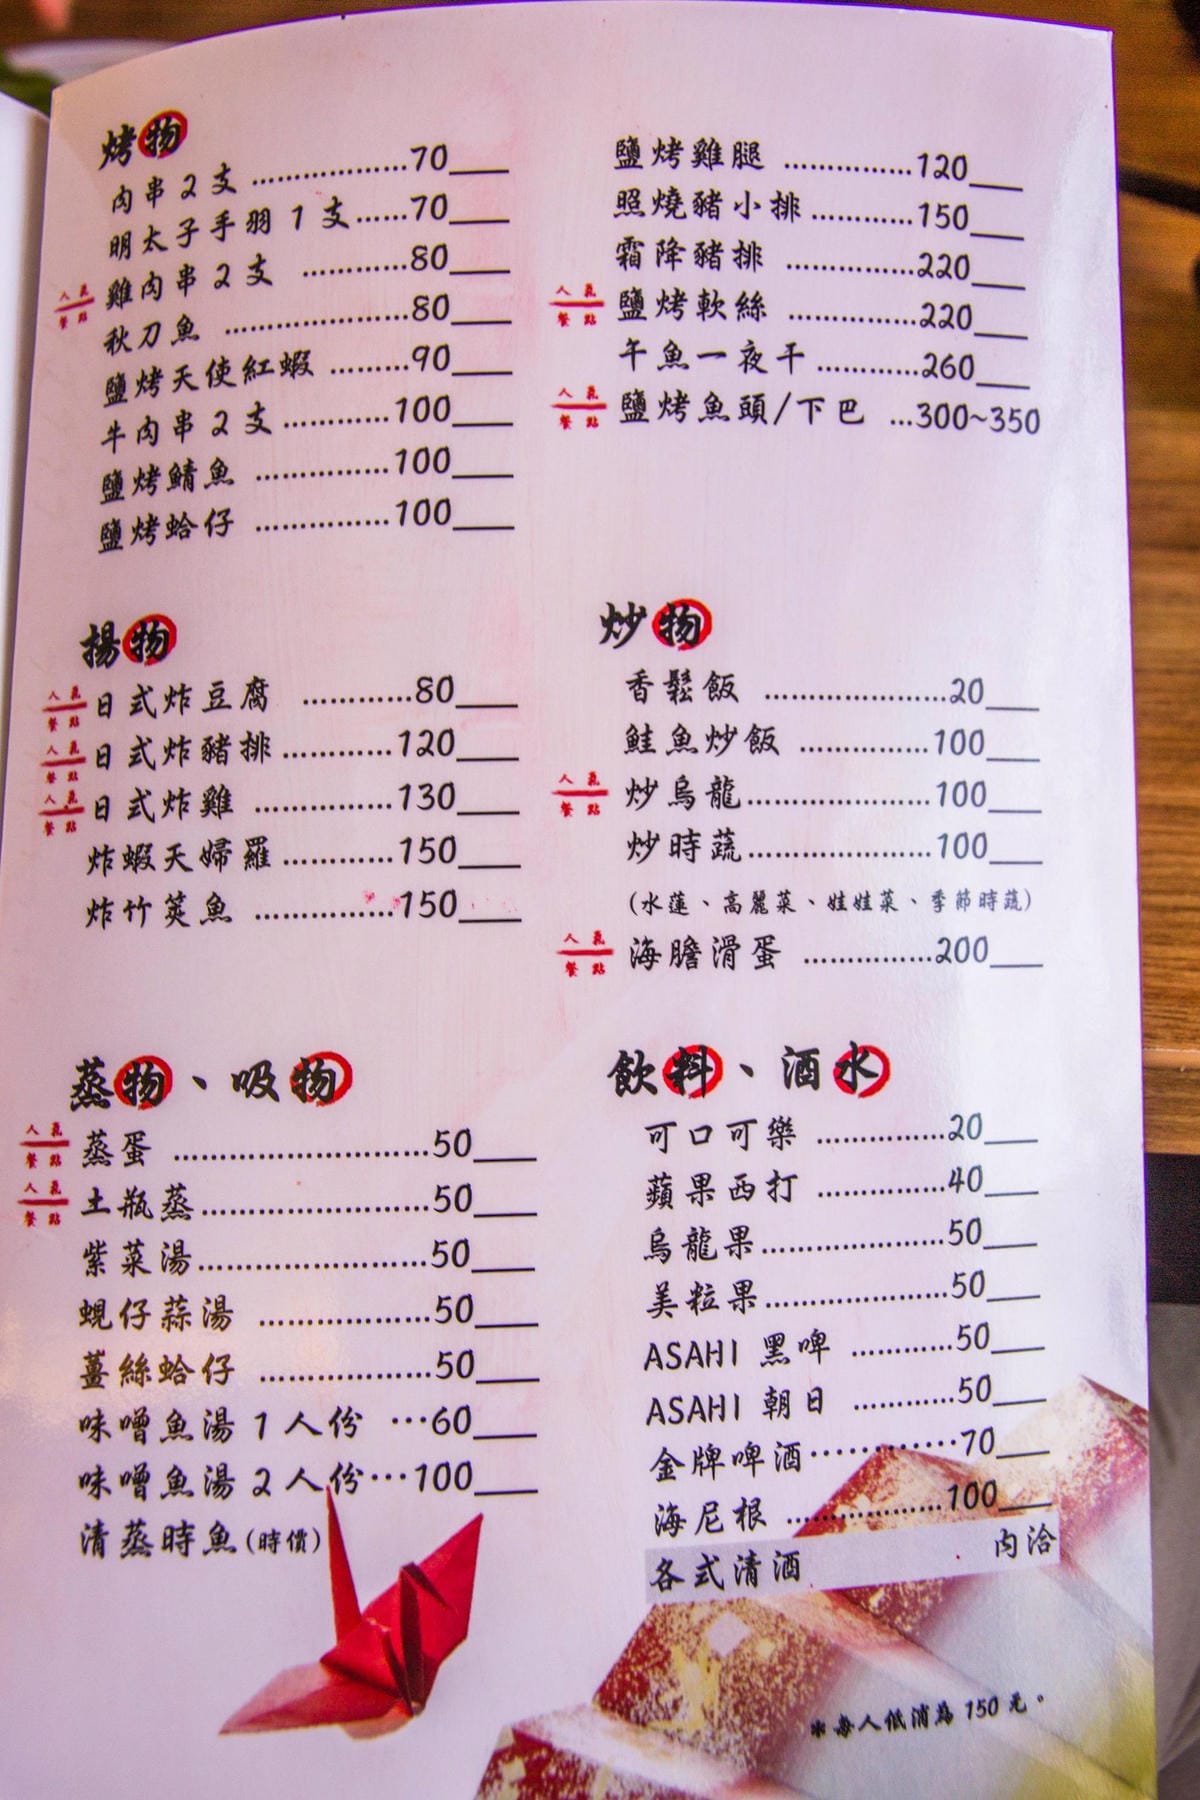 烤物
肉串2支..................70___
明太子手羽1支......70___
雞肉串2支 ............80___
人氣
餐點
秋刀魚 .....................80___
鹽烤天使紅蝦 .........90___
牛肉串2支...............100___
鹽烤鯖魚 ...............100___
鹽烤蛤仔 ...............100___
鹽烤雞腿 ...............120___
照燒豬小排............150___
霜降豬排 ...............220___
人氣
餐點
鹽烤軟絲 ...............220___
午魚一夜干............260___
人氣
餐點
鹽烤魚頭/下巴 ...300~350
揚物
人氣
餐點
日式炸豆腐 ............80___
人氣
餐點
日式炸豬排............120___
人氣
餐點
日式炸雞 ...............130___
炸蝦天婦羅............150___
炸竹筴魚 ...............150___
炒物
香鬆飯 .....................20___
鮭魚炒飯 ...............100___
人氣
餐點
炒烏龍.....................100___
炒時蔬.....................100___
(水蓮、高麗菜、娃娃菜、季節時蔬)
人氣
餐點
海膽滑蛋 ...............200___
蒸物、吸物
人氣
餐點
蒸蛋 ..............................50___
人氣
餐點
土瓶蒸...........................50___
紫菜湯...........................50___
蜆仔蒜湯 .....................50___
薑絲蛤仔 .....................50___
味噌魚湯1人份 …60___
味噌魚湯2人份…100___
清蒸時魚(時價)
飲料、酒水
可口可樂 ...............20___
蘋果西打 ...............40___
烏龍果.....................50___
美粒果.....................50___
ASAHI 黑啤 ............50___
ASAHI 朝日 ............50___
金牌啤酒···············70___
海尼根 ..................100___
各式清酒 內洽
＊每人低消為150元。